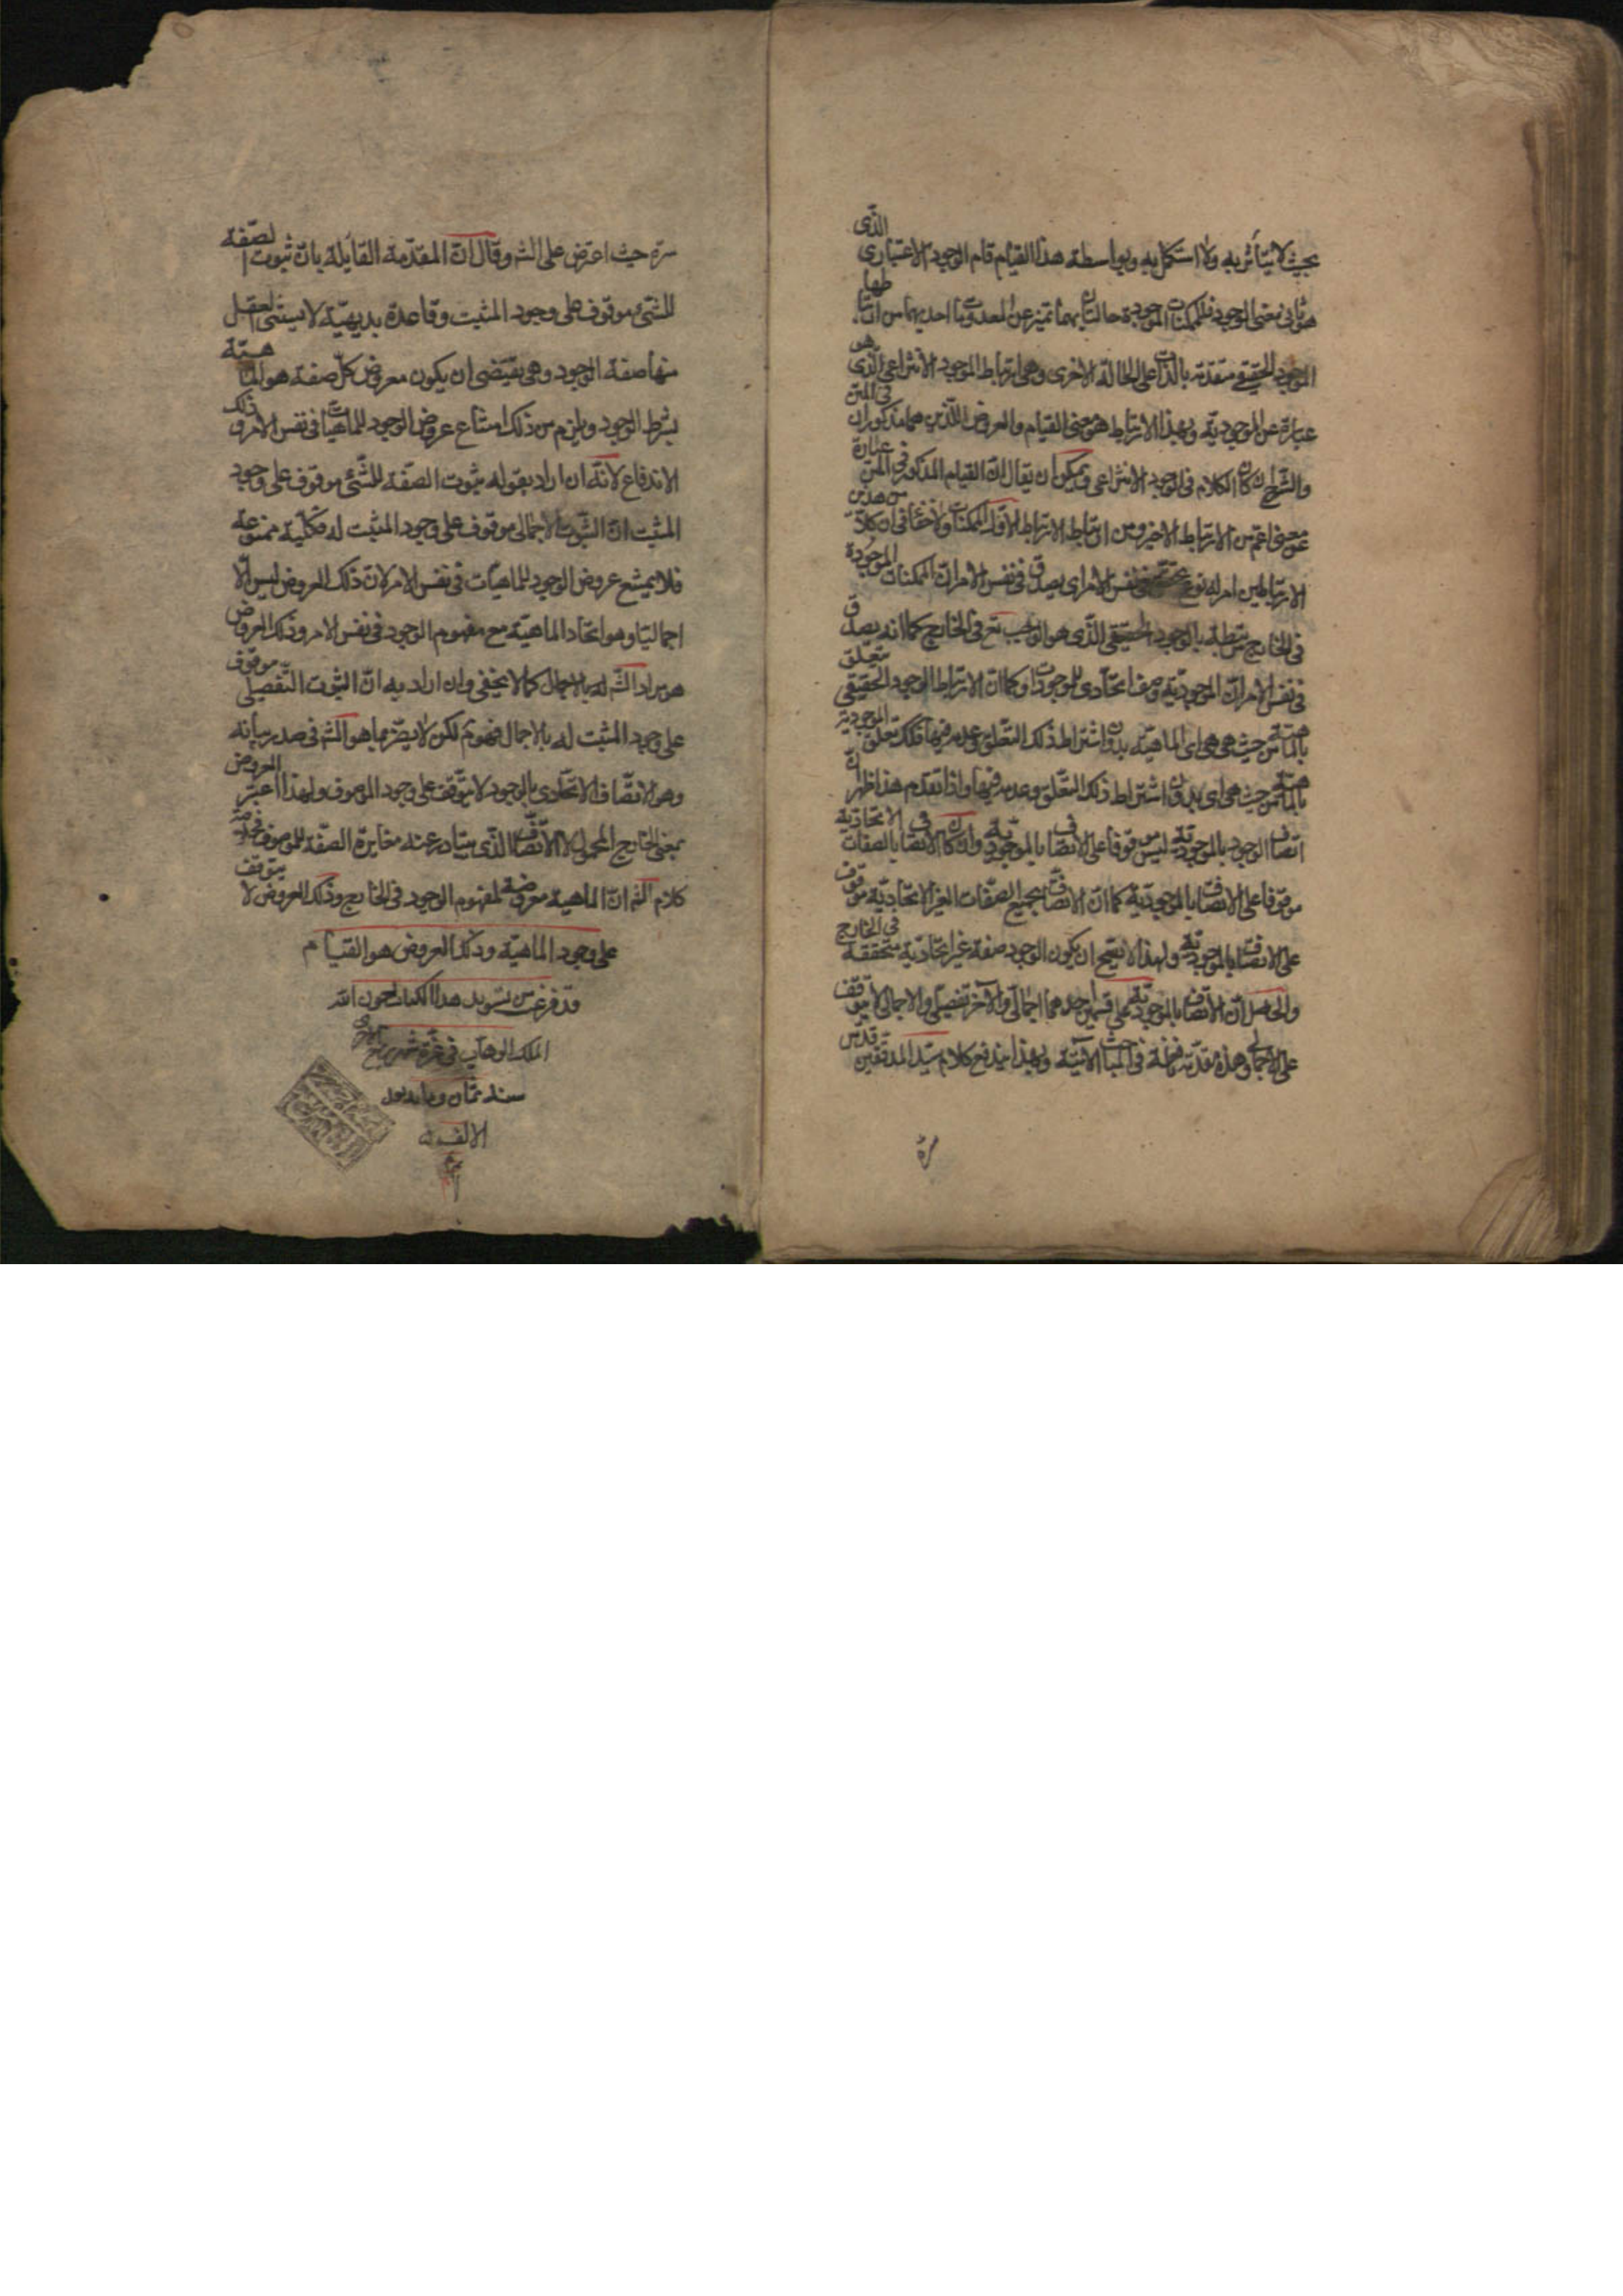 بحيث لا يتأثر به ولا استكمل به وبواسطة هذا القيام قام الوجود الاعتبارى الذى
هو ثانى معنى الوجود فللممكنات الموجودة حالتان بهما تميز عن المعدومات احديهما
الموجود الحقيقى متقدمة بالذات على الحالة الاخرى وهى ارتباط الموجود الانتزاعى الذى هو
عبارة عن الموجودية وبهذا الارتباط هو معنى القيام والعروض اللذين هما مذكوران فى المتن
والشرح كان الكلام فى الوجود الانتزاعى ويمكن ان يقال ان القيام المذكور فى عبارة المتن
معنى اعم من الارتباط الاخير ومن ارتباط الارتباط الاول الممكنات ولا خفا فى ان كلا من هذين
الارتباطين امر له نوع تحقق فى نفس الامر اى يصدق فى نفس الامر ان الممكنات الموجودة
فى الخارج مرتبطة بالوجود الحقيقى الذى هو الواجب تع فى الخارج كما انه يصدق
فى نفس الامر ان الموجودية وصف اتحادى للموجودات وكما ان الارتباط الوجود الحقيقى متعلق
بالماهية من حيث هى هى اى الماهية بدون اشتراط ذلك التعلق وعدمه فيها فكذلك تعلق الموجودية
بالماهية من حيث هى اى بدون اشتراط ذلك التعلق وعدمه فيها واذا تقدم هذا ظهر ان
اتصاف الوجود بالموجودية ليس موقوفا على الاتصاف بالموجودية وان كان الاتصاف بالصفات الاتحادية
موقوفا على الاتصاف بالموجودية كما ان الاتصاف بجميع الصفات الغير الاتحادية موقوف
على الاتصاف بالموجودية ولهذا لا يصح ان يكون الوجود صفة غير اتحادية متحققة فى الخارج
والحاصل ان الاتصاف بالموجودية على قسمين احدهما اجمالى والآخر تفصيلى والاجمالى لا يتوقف
على الاجمالى وهذه مقدمة نافعة فى المباحث الآتية وبهذا يندفع كلام سيد المدققين قدس
سره
سره حيث اعترض على الشه وقال ان المقدمة القايلة بان ثبوت الصفة
للشئ موقوف على وجود المثبت وقاعدة بديهية لا يستثنى العقل
منها صفة الوجود وهى يقتضى ان يكون معروض كل صفة هو الماهية
بشرط الوجود ويلزم من ذلك امتناع عروض الوجود للماهيات فى نفس الامر وذلك
الاندفاع لانه ان اراد بقوله ثبوت الصفة للشئ موقوف على وجود
المثبت ان الثبوت الاجمالى موقوف على وجود المثبت له فكلية ممنوعة
فلا يمتنع عروض الوجود للماهيات فى نفس الامر لان ذلك العروض ليس الا
اجماليا وهو اتحاد الماهية مع مفهوم الوجود فى نفس الامر وذلك العروض
هو مراد الشه له بالاجمال كما لا يخفى وان اراد به ان الثبوت التفصيلى موقوف
على وجود المثبت له بالاجمال فهو تم لكن لا يضر بما هو الشه فى صدد بيانه
وهو الاتصاف الاتحادى بالوجود لا يتوقف على وجود الموصوف ولهذا اعتبر العروض
بمعنى الخارج المحمول لا الاتصاف الذى يتبادر عنه مغايرة الصفة للموصوف
كلام الشه ان الماهية معروضة لمفهوم الوجود فى الخارج وذلك العروض لا يتوقف
على وجود الماهية وذلك العروض هو القيام
قد فرغت من تسويد هذا الكتاب بعون الله
الملك الوهاب فى غرة شهر
سنة ثمان و بعد
الالف